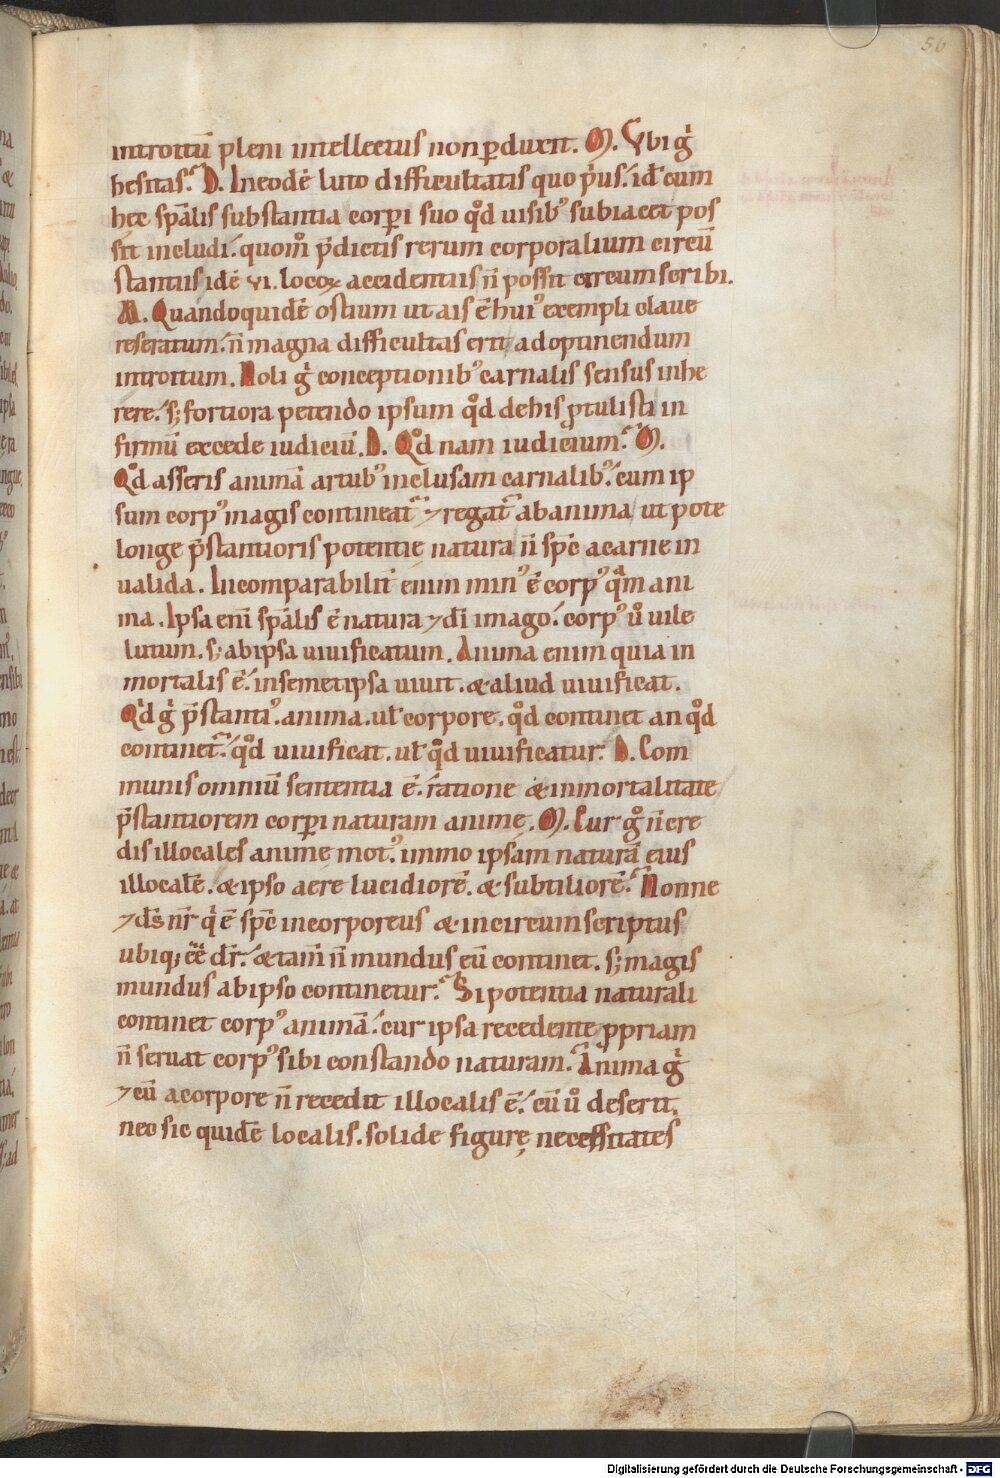 56
introitū pleni intellectus non ꝑduxit. M. Vbi gͥ
hesitas? D. In eodē luto difficultatis quo pͥus. id̄ cum
hęc spālis substantia corꝑi suo qͦd uisibꝰ subiacet pos
sit includi. quom̊ p̄dictis rerum corporalium circū
stantiis idē vi. locoꝝ accidentiis n̄ possit circumscribi.
M. Quandoquidē ostium ut ais ē huiꝰ exempli claue
reseratum. n̄ magna difficultas erit ad optinendum
introitum. Noli gͥ conceptionibꝰ carnalis sensus inhe
rere. s; fortiora petendo ipsum qͦd de his ꝓtulisti in
firmū excede iudiciū. D. Qͦd nam iudicium? M.
Qͦd asseris animā artubꝰ inclusam carnalibꝰ. cum ip
sum corpꝰ magis contineat᷑ ⁊ regat᷑ ab anima, ut pote
longe p̄stantioris potentię natura n̄ spc̄ a carne in
ualida. Incomparabilit̄ enim minꝰ ē corpꝰ qͣm ani
ma. Ipsa enī spālis ē natura ⁊ dī imago. corpꝰ ů uile
lutum. s; ab ipsa uiuificatum. Anima enim quia in
mortalis ē. in semetipsa uiuit. & aliud uiuificat.
Qͥd gͥ p̄stantiꝰ. anima. ul̄ corpore. qͦd continet an qͦd
continet᷑. qͦd uiuificat. ul̄ qͦd uiuificatur? D. Com
munis omniū sententia ē. ratione & inmortalitate
p̄stantiorem corꝑi naturam animę. M. Cur gͦ n̄ cre
dis illocales animę motꝰ. immo ipsam naturā eius
illocalē. & ipso aere lucidiorē. & subtiliorē? Nonne
⁊ ds̄ nr̄ qͥ ē spc̄ incorporeus & incircumscriptus
ubiq; eē̄ dr̄. & tam̄ n̄ mundus eū continet. s; magis
mundus ab ipso continetur? Si potentia naturali
continet corpꝰ animā. cur ipsa recedente ꝓpriam
n̄ seruat corpꝰ sibi constando naturam? Anima gͥ
⁊ cū a corpore n̄ recedit illocalis ē. cū ů deserit.
nec sic quidē localis. solide figurę necessitates
Digitalisierung gefördert durch die Deutsche Forschungsgemeinschaft - DFG